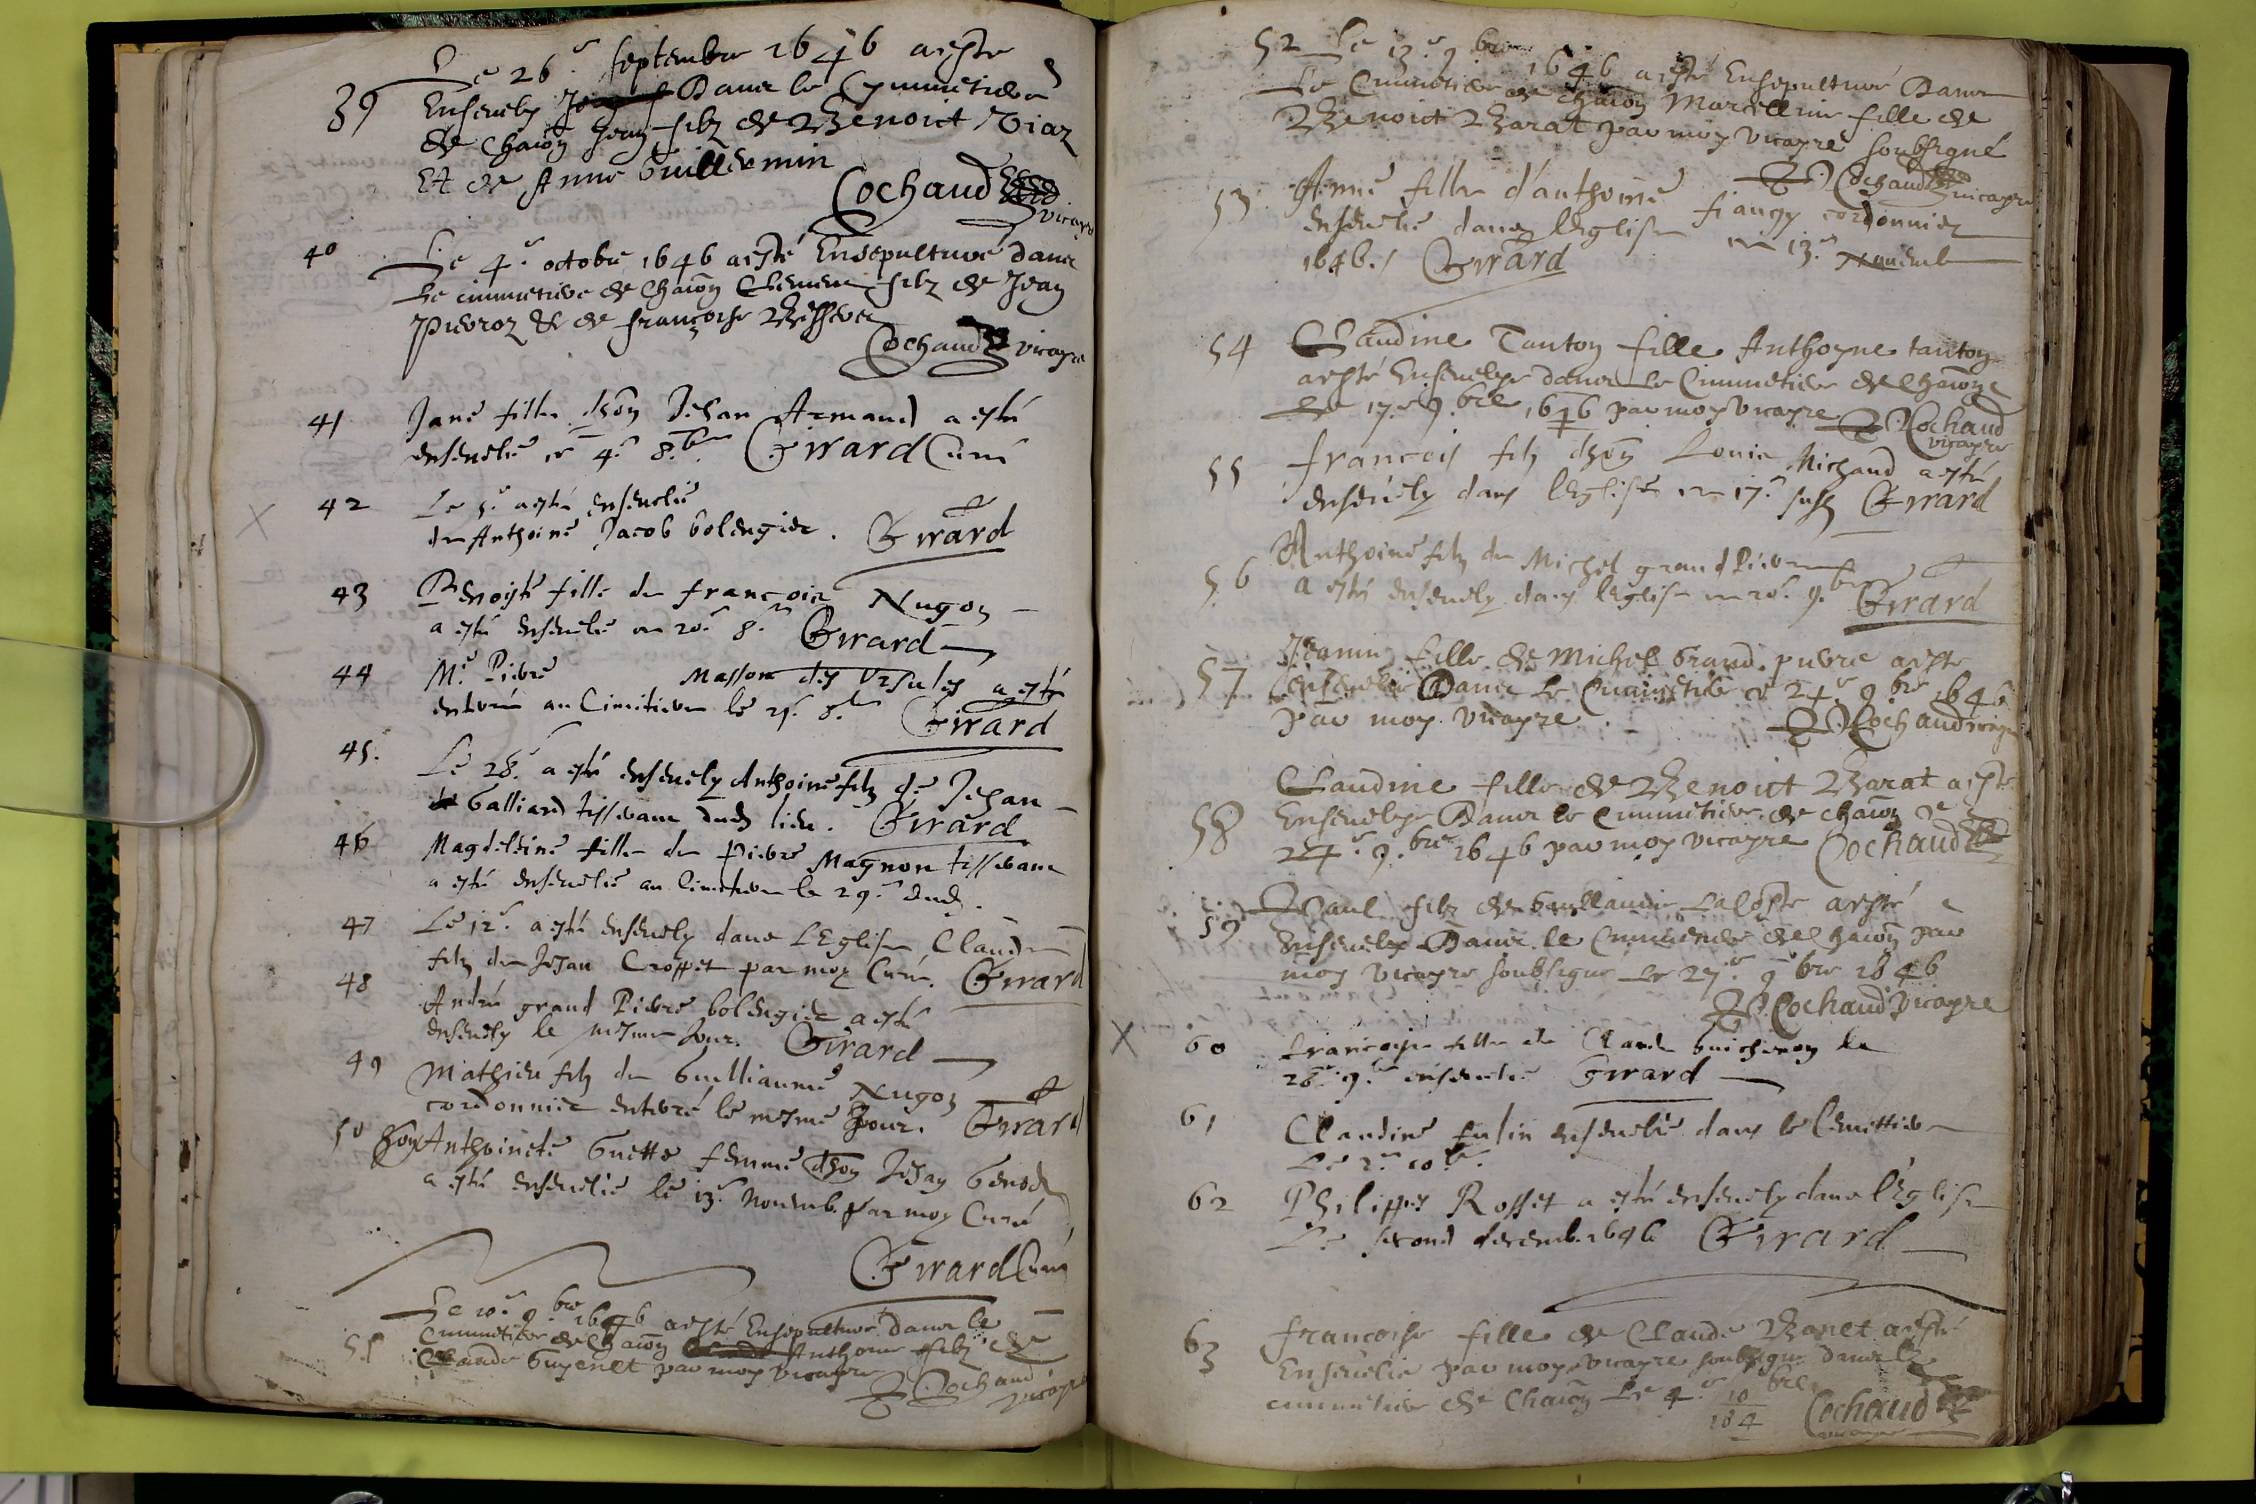 39 Le 26.e septembre 1646 aesté
Ensevely Dans le Cymmetiere
de Chaiōn Jean filz de Benoict Viaz
Et de Anne Guillermin
Cochaud vicayre
40 Le 4.e octobre 1646 aesté Ensepulturé dans
Le cimmetiere de Chaiōn Clement filz de Jean
Pierroz & de françoise
Cochaud vicayre
41 Jane fille d'hōn Jehan Armand a esté
ensevelie ce 4.e 8.bre Girard Curé
42 Le 5.e a esté ensevelie
de Anthoine Jacob bolengier. Girard
43 Benoiste fille de françois Nugoz
a esté ensevelie ce 20.e 8.bre Girard
44 M.e Pierre Masson des Ursules a esté
enterré au Cimitiere le 25. 8.bre Girard
45. Le 28.e a esté ensevely Anthoine filz de Jehan
Galliard tisserant dud. lieu. Girard
46 Magdeleine fille de Pierre Magnon tisserant
a esté ensevelie au Cimitiere le 29.e dud.
47 Le 12.e a esté ensevely dans L'Eglise Claude
filz de Jehan Croppet par moy Curé. Girard
48 André grand Pierre bolengier a esté
ensevely le mesme Jour. Girard
49 Mathieu filz de Guilliaume Nugoz
cordonnier enterré le mesme Jour. Girard
50 hōn Anthoinete Guette femme d'hon Jehan
a esté ensevelie le 13.e Novemb. par moy Curé
Girard Curé
51 Le 10.e 9.bre 1646 aesté Ensepulturé dans le
Cimmetiere de Chaiōn Anthoine filz de
Claude Guyenet par moy vicayre
Cochaud vicayre
52 Le 13.e 9.bre 1646 aesté Ensepulturé Dans
Le Cimmetiere de Chaiōn Marcelline fille de
Benoict Barat par moy vicayre soubsigné
Cochaud vicayre
53. Anne fille d'anthoine françy cordonnier
ensevelie dans leglise ce 13.e Novemb
1646./ Girard
54 Claudine Tantoy fille Anthoyne tantoy
aesté Ensevelye dans Le Cimmetiere de Chaiōn
Le 17.e 9.bre 1646 par moy vicayre Cochaud
vicayre
55 francois filz d'hōn Louis Michaud a esté
ensevely dans leglise ce 17.e susd. Girard
56 Anthoine filz de Michel grand Pierre
a esté ensevely dans leglise ce 20.e 9.bre Girard
57 fille de Michel Grand pierre aesté
ensevelie Dans Le Cimmetiere ce 24.e 9.bre 1646
par moy vicayre. Cochaud vicayre
58 Claudine fille de Benoict Barat aesté
Ensevelye Dans le Cimmetiere de Chaiōn ce
24.e 9.bre 1646 par moy vicayre Cochaud
59 Paul filz de Guillaume Lacoste aesté
Ensevely Dans le Cimmetiere de Chaiōn par
moy vicayre soubsigné Le 27.e 9.bre 1646
Cochaud vicayre
60 francoise fille de Claude Guicheroy le
28.e 9.bre ensevelie Girard
61 Claudine ensevelie dans le Cemittiere
Le 2.e 10.bre.
62 Philippes Rosset a esté ensevely dans l'Eglise
Le second decemb. 1646 Girard
63 francoise fille de Claude Banet aesté
Ensevelie par moy vicayre soubsigné dans le
cimmetiere de Chaiōn Le 4.e 10 bre
164 Cochaud